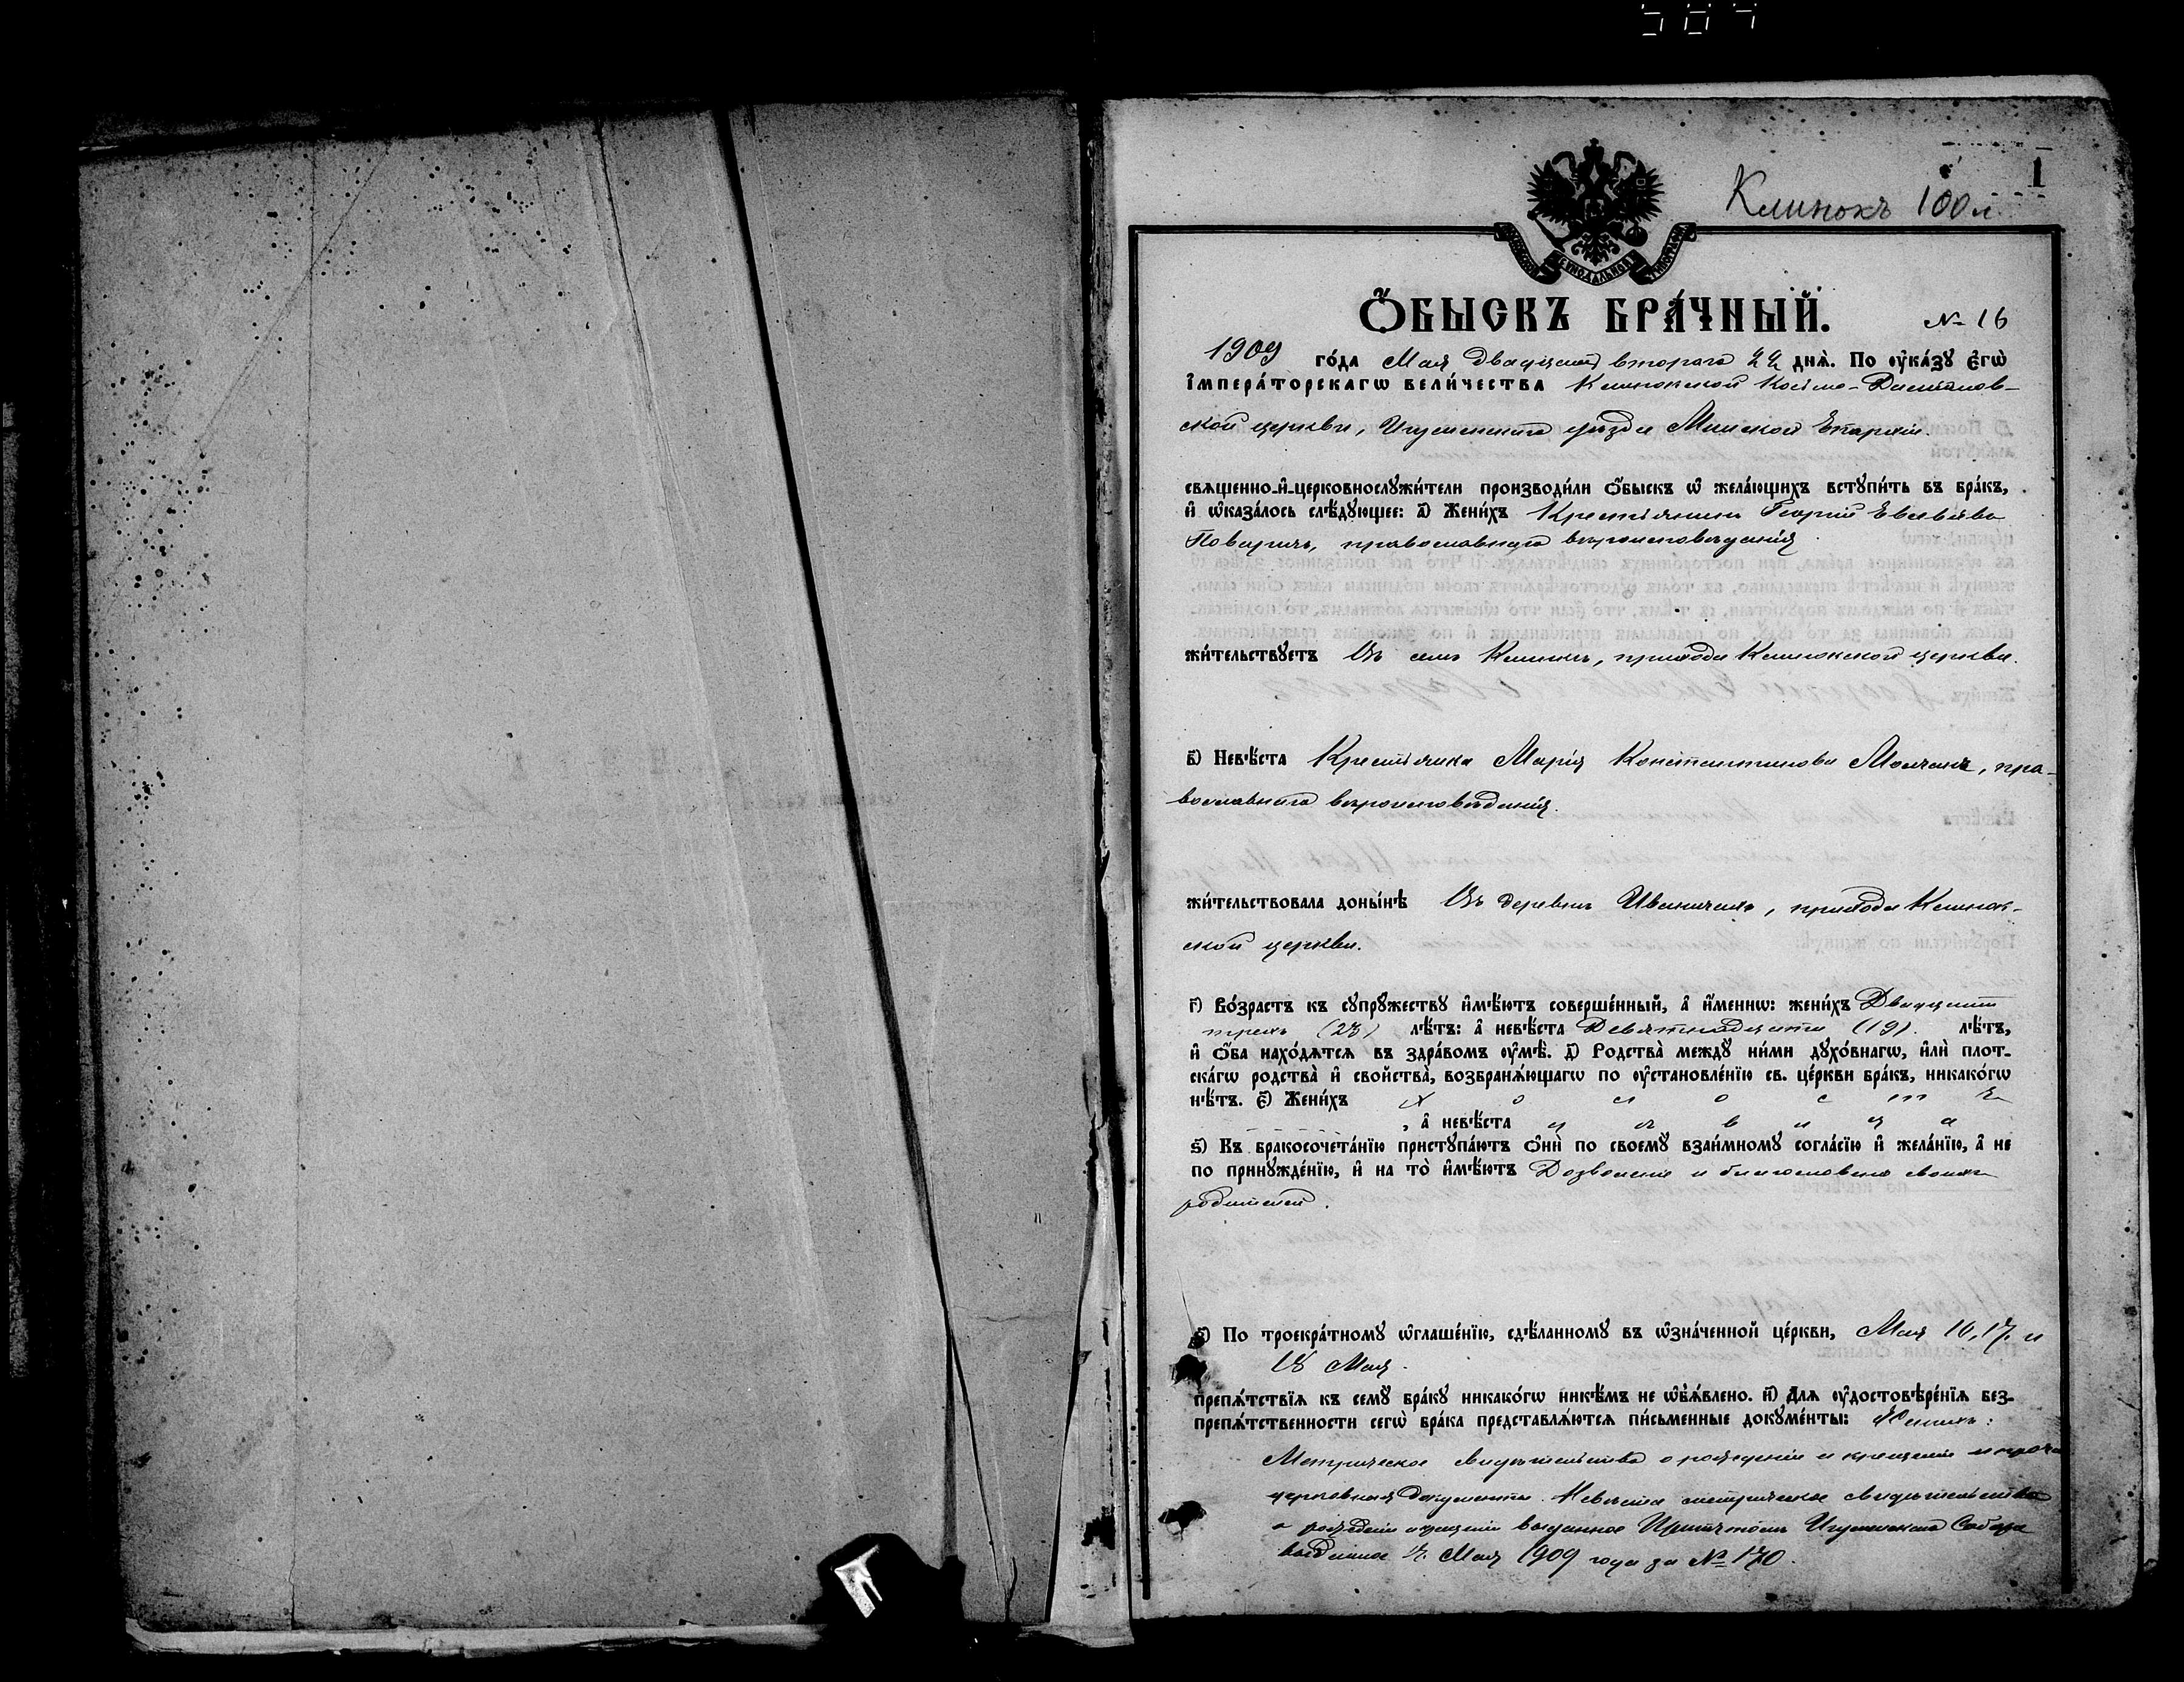 1
Клинокъ 100 л.
СѴНОДАЛЬНОЙ
Ѻ҆БЫСКЪ БРА́ЧНЫЙ.
№ 16
1909 го́да Мая двадцать второго 22 днѧ̀. По ᲂу҆ка́зꙋ Е҆гѡ̀
І҆мпера́торскагѡ вели́чества Клинокской Косьмо-Даміанов-
ской церкви, Игуменскаго уѣзда Минской Епархіи.
свѧщенно-и҆-церковнослꙋжи́тели производи́ли ѻ҆́быскъ ѡ҆ жела́ющихъ встꙋпи́ть въ бра́къ,
и҆ ѡ҆каза́лось слѣ́дꙋющее: а҃) Жени́хъ Крестьянинъ Георгій
православнаго вѣроисповѣданія
жи́тельствꙋетъ Въ селѣ Клинкѣ, прихода Клинокской церкви.
в҃) Невѣ́ста Крестьянка Марія Константинова Молчанъ, пра-
вославнаго вѣроисповѣданія.
жи́тельствовала доны́нѣ Въ деревнѣ Иваничахъ, прихода Клинок-
ской церкви.
г҃) Во́зрастъ къ сꙋпрꙋ́жествꙋ и҆мѣ́ютъ соверше́нный, а҆ и҆́меннѡ: жени́хъ Двадцати
трехъ (23) лѣ́тъ: а҆ невѣ́ста Девятнадцати (19). лѣ́тъ,
и҆ ѻ҆́ба нахо́дѧтсѧ въ здра́вомъ ᲂу҆мѣ̀. д҃) Родства̀ междꙋ̀ ни́ми дꙋхо́внагѡ, и҆лѝ плот-
ска́гѡ родства̀ и҆ свойства̀, возбранѧ́ющагѡ по ᲂу҆становле́нїю св. це́ркви бра́къ, никако́гѡ
нѣ́тъ. є҃) Жени́хъ х о л о с т ъ
, а҆ невѣ́ста д ѣ в и ц а
ѕ҃) Къ бракосочета́нїю пристꙋпа́ютъ ѻ҆нѝ по своемꙋ̀ взаи́мномꙋ согла́сїю и҆ жела́нїю, а҆ не
по принꙋжде́нїю, и҆ на то̀ и҆мѣ́ютъ Дозволеніе и благословеніе своихъ
родителей.
з҃) По троекра́тномꙋ ѡ҆глаше́нїю, сдѣ́ланномꙋ въ ѡ҆зна́ченной це́ркви, Мая 10, 17 и
18 Мая.
препѧ́тствїѧ къ семꙋ̀ бра́кꙋ никако́гѡ никѣ́мъ не ѡ҆б̾ѧ́влено. и҃) Длѧ ᲂу҆достовѣре́нїѧ без-
препѧ́тственности сегѡ̀ бра́ка представлѧ́ютсѧ пи́сьменные докꙋме́нты: Женихъ:
Метрическое свидѣтельство о рожденіи и крещеніи и
церковныя документы. Невѣста метрическое свидѣтельство
о рожденіи и крещеніи выданное Причтомъ Игуменскаго Собора
выданное Мая 1909 года за № 170.